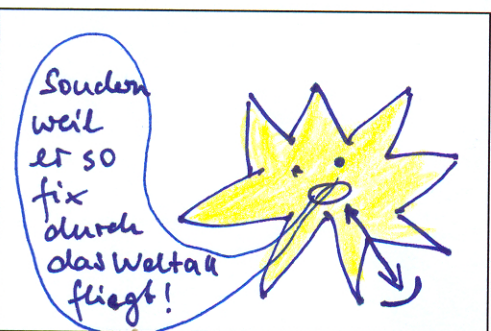 Sondern
weil
er so
fix
durch
das Weltall
fliegt!